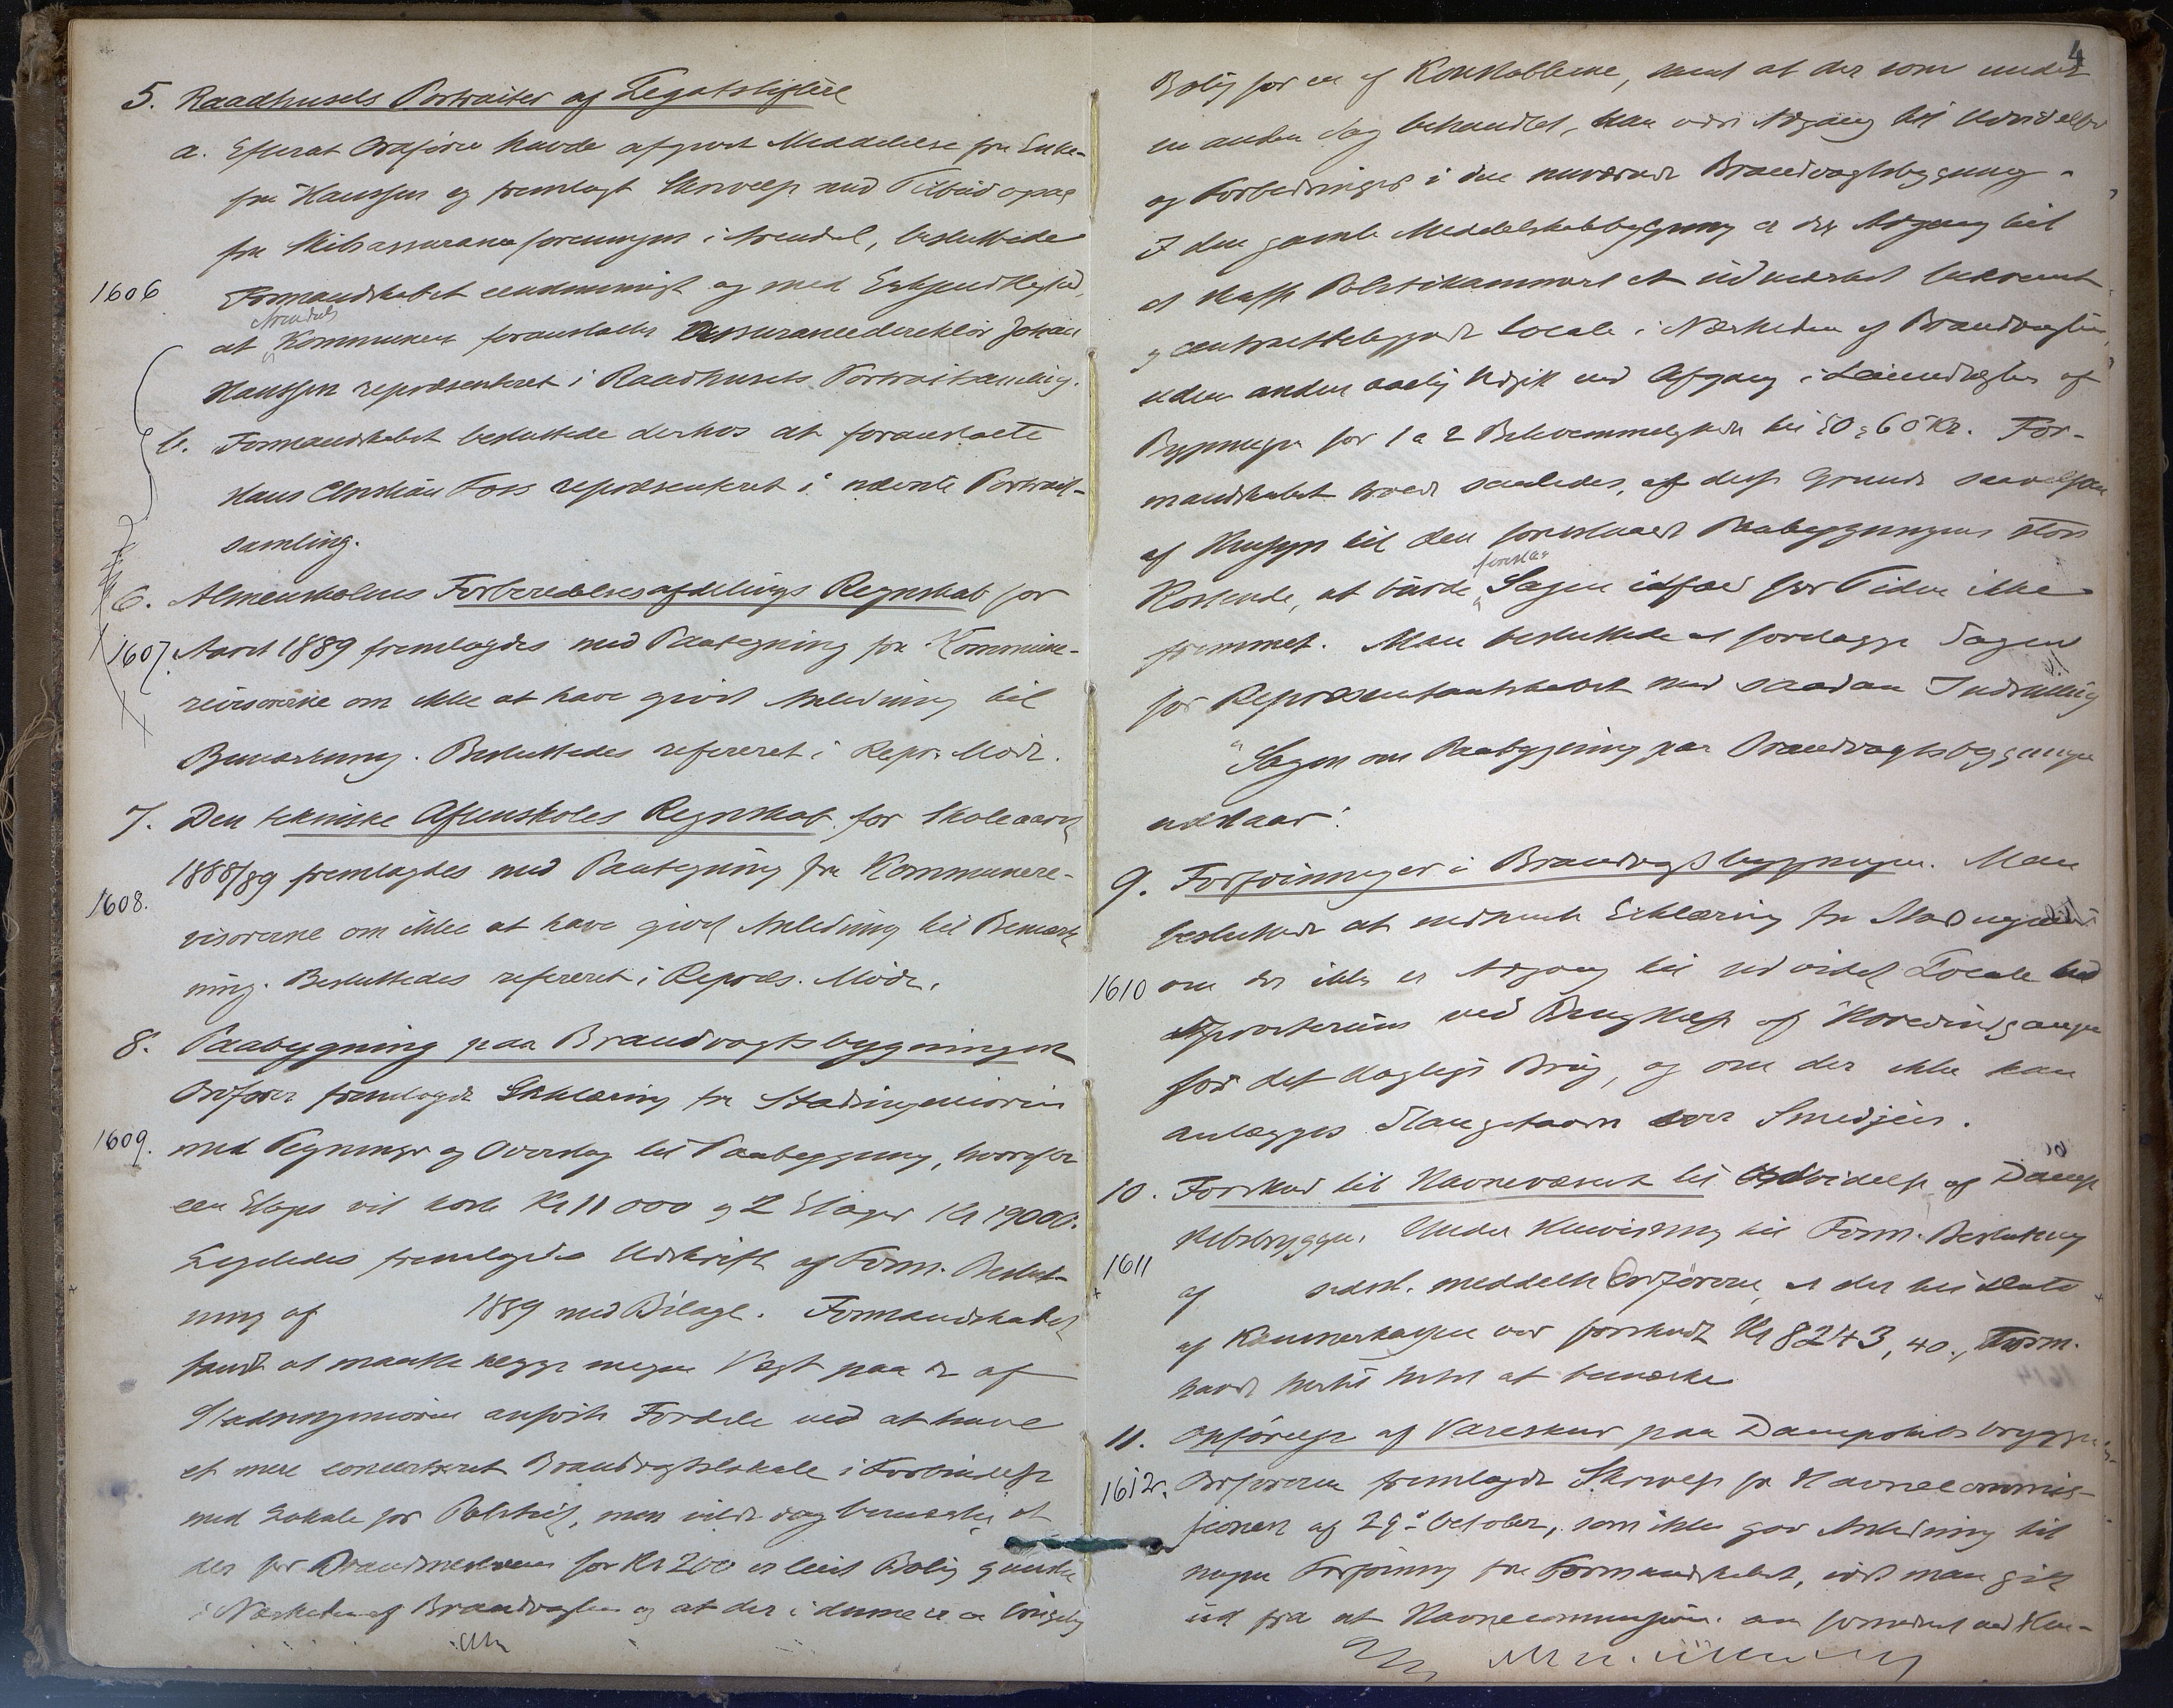 5. Raadhusets Portraiter af Legatstiftere
a. Efterat Ordfører havde afgivet Meddelelse fra Enke-
fru Hanssen og fremlagt Skrivelse med Tilbud
fra Skibsassuranceforeningen i Arendal, besluttede
1606
Formandskabet eenstemmigt og med Erkjendtlighed,
Arendals
at Kommunen foranstalter Assurancedirektør Johan
Hanssen repræsenteret i Raadhusets Portraitsamling.
b. Formandskabet besluttede derhos at foranstalte
Hans Christian Foss repræsenteret i nævnte Portrait-
samling.
6. Almenskolens Forberedelsesafdelings Regnskab for
1607. Aaret 1889 fremlagdes med Paategning fra Kommune-
revisorerne om ikke at have givet Anledning til
Bemærkning. Besluttedes refereret i Repr. Møde.
7. Den tekniske Aftenskoles Regnskab for Skoleaaret
1888/89 fremlagdes med Paategning fra Kommunere-
1608.
visorerne om ikke at have givet Anledning til Bemærk-
ning. Besluttedes refereret i Repræs. Møde.
8. Paabygning paa Brandvagtsbygningen
Ordfører fremlagde Erklæring fra Stadsingeniøren
1609.
med Tegninger og Overslag til Paabygning, hvorefter
een Etage vil koste Kr 11 000 og 2 Etager Kr 19000.
Ligeledes fremlagdes Udskrift af Form. Beslut-
ning af 1889 med Bilage. Formandskabet
fandt at maatte lægge megen Vægt paa de af
Stadsingeniøren anførte Fordele ved at have
et mere concentreret Brandvagtslokale i Forbindelse
med Lokale for Politiet, men vilde dog bemærke, at
der for Brandmesteren for Kr 200 er leiet Bolig
i Nærheden af Brandvagten og at der i denne er
4
Bolig for en af Konstablerne, samt at der som under
en anden Sag behandlet, kan være Adgang til Udvidelser
og Forbedringer i den nuværende Brandvagtsbygning.
I den gamle Middelskolebygning er der Adgang til
at skaffe Politikammeret et udmærket bekvemt
og centraltbeliggende Locale i Nærheden af Brandvagten,
uden anden aarlig Udgift end Afgang i Leieindtægten af
Bygningen for 1 a 2 Bekvemmeligheder til 50 a 60 Kr. For-
mandskabet troede saaledes, af disse Grunde saavelsom
af Hensyn til den foreslaaede Paabygningens store
foreslaa
Kostende, at burde Sagen ialfald for Tiden ikke
fremmet. Man besluttede at forelægge Sagen
for Repræsentantskabet med saadan Indstilling
"Sagen om Paabygning paa Brandvagtsbygningen
udstaar".
9. Forføininger i Brandvagtsbygningen. Man
besluttede at indhente Erklæring fra Stadsingeniøren
1610 om der ikke er Adgang til udvidet Locale
ved Benyttelse af Hovedindgangen
for det daglige Brug, og om der ikke kan
anlægges Slangetaarn over Smedjen.
10. Forskud til Havnevæsenet til Udvidelse af Damp-
skibsbryggen. Under Henvisning til Form. Beslutning
1611
af sidstl. meddelte Ordføreren, at der til Dato
af Kæmnerkassen var forskudt Kr 8243,40., Form.
havde hertil Intet at bemærke
11. Opførelse af Vareskur paa Dampskibsbryggen
1612. Ordføreren fremlagde Skrivelse fra Havnecommis-
sionen af 29de October, som ikke gav Anledning til
nogen Forføining fra Formandskabet, idet man gik
ud fra at Havnecommissionen